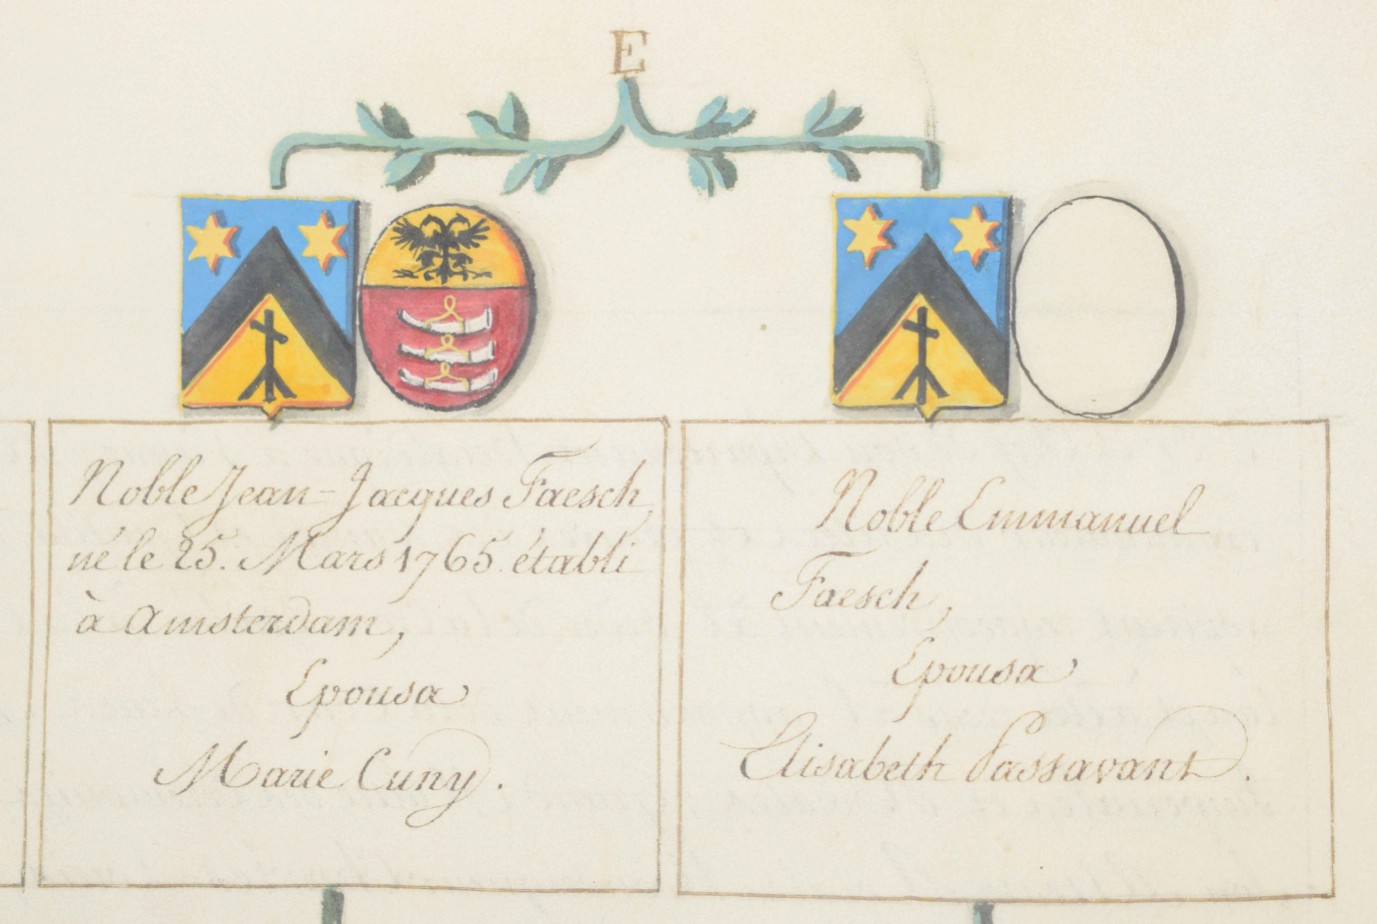 E
Noble Jean-Jacques Faesch,
né le 25. Mars 1765. établi
à Amsterdam,
Epousa
Marie Cuny.
Noble Emmanuel
Faesch,
Epousa
Elisabeth Passavant.